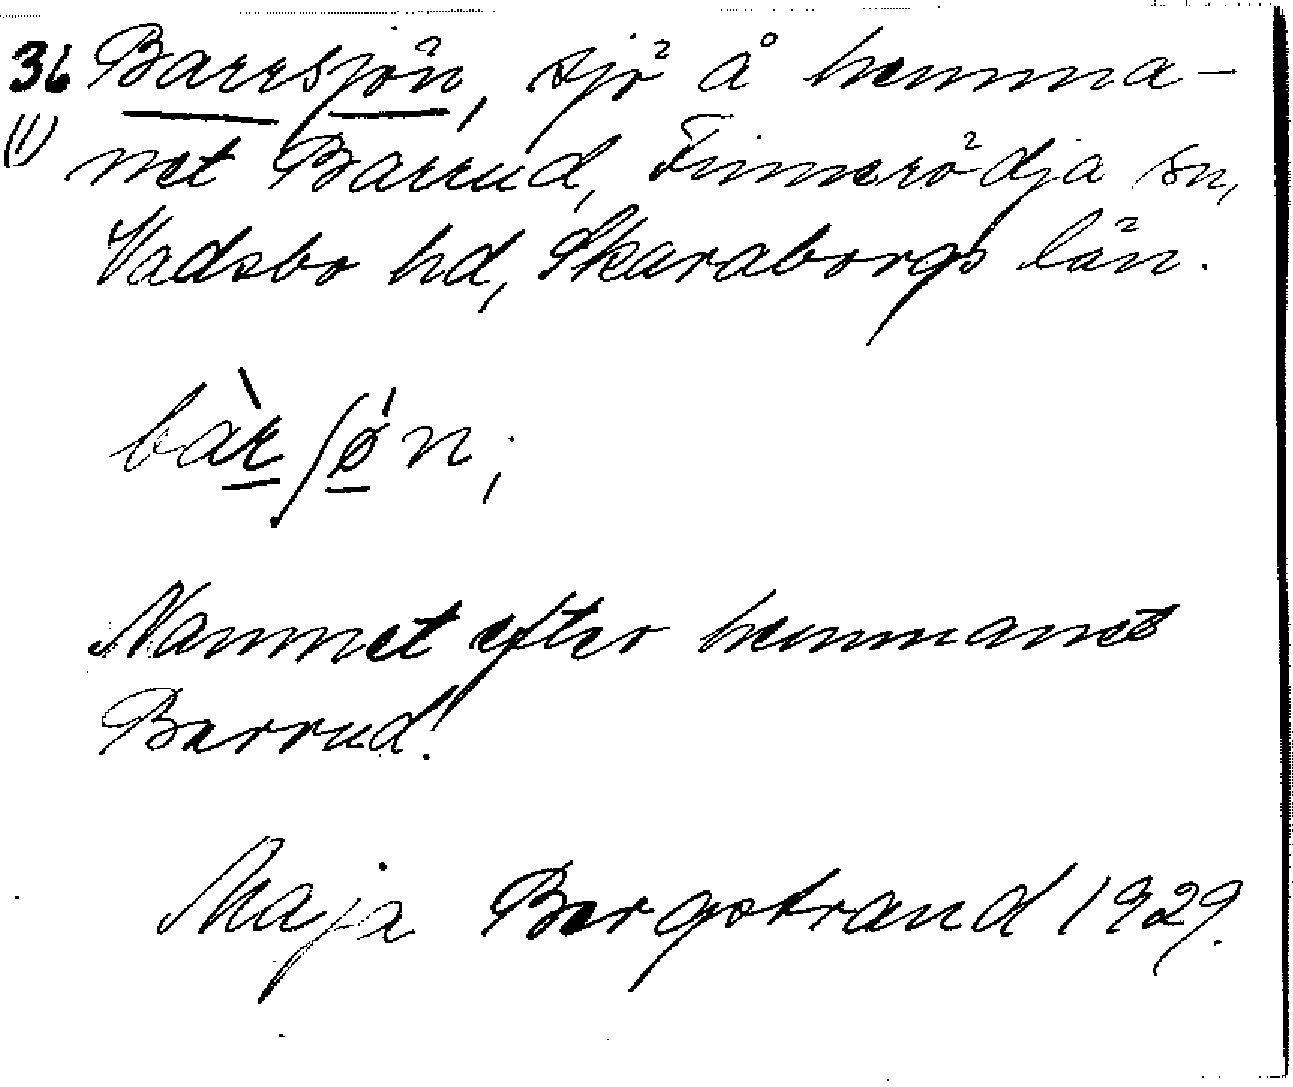 36 Barrsjön, sjö å hemma-
(1) net Barrud, Finnerödja sn,
Vadsbo hd, Skaraborgs län.
bàr̲ʃǿ̲n;
Namnet efter hemmanet
Barrud!
Maja Bergstrand 1929.